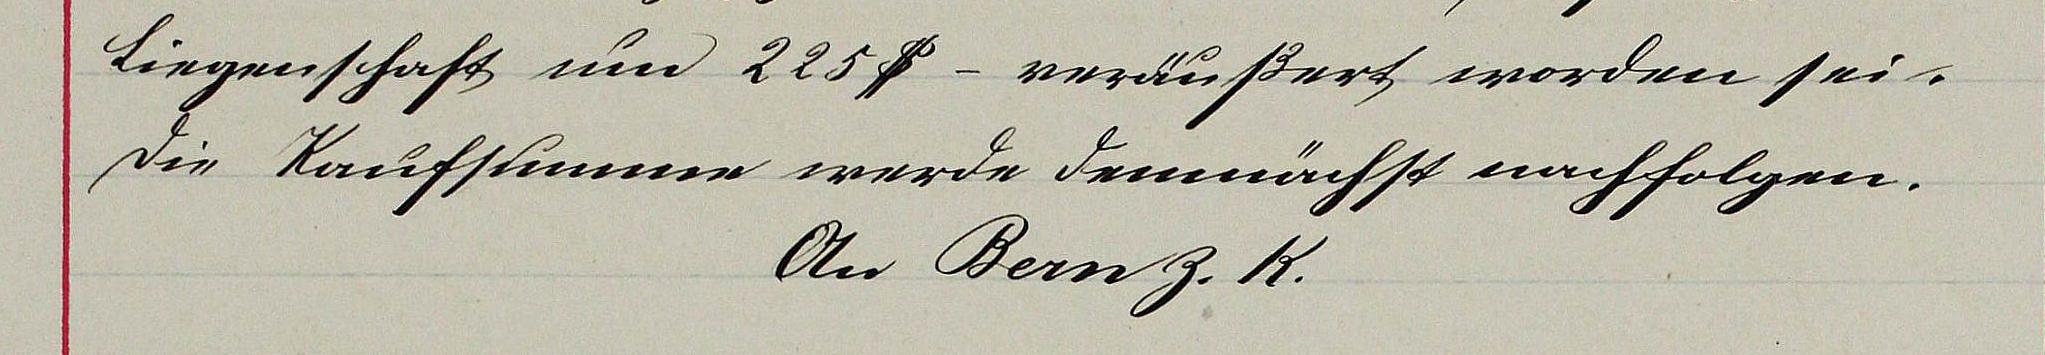 Liegenschaft um 225 $ - veräußert worden sei.
Die Kaufsumme werde demnächst nachfolgen.
An Bern z. K.